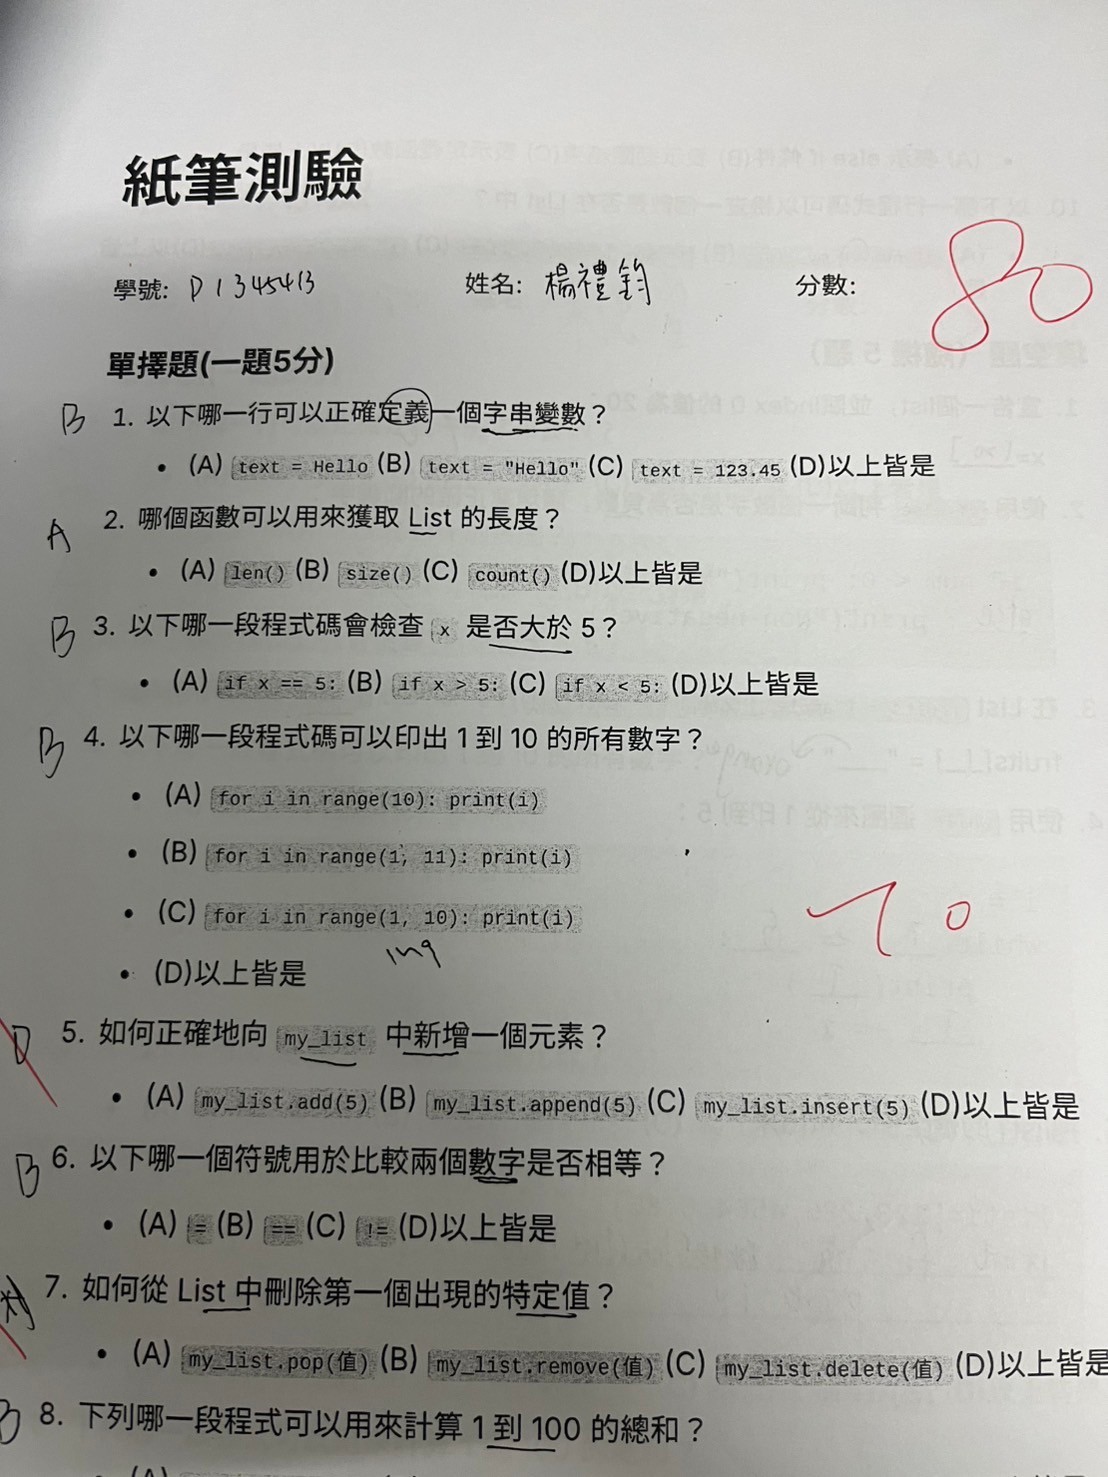 紙筆測驗
學號: D1345413 姓名: 楊禮鈞 分數: 80
單擇題(一題5分)
B 1. 以下哪一行可以正確定義一個字串變數？
• (A) text = Hello (B) text = "Hello" (C) text = 123.45 (D)以上皆是
A 2. 哪個函數可以用來獲取 List 的長度？
• (A) len() (B) size() (C) count() (D)以上皆是
B 3. 以下哪一段程式碼會檢查 x 是否大於 5？
• (A) if x == 5: (B) if x > 5: (C) if x < 5: (D)以上皆是
B 4. 以下哪一段程式碼可以印出 1 到 10 的所有數字？
• (A) for i in range(10): print(i)
• (B) for i in range(1, 11): print(i)
• (C) for i in range(1, 10): print(i)
70
1~9
• (D)以上皆是
D 5. 如何正確地向 my_list 中新增一個元素？
• (A) my_list.add(5) (B) my_list.append(5) (C) my_list.insert(5) (D)以上皆是
B 6. 以下哪一個符號用於比較兩個數字是否相等？
• (A) = (B) == (C) != (D)以上皆是
7. 如何從 List 中刪除第一個出現的特定值？
• (A) my_list.pop(值) (B) my_list.remove(值) (C) my_list.delete(值) (D)以上皆是
B 8. 下列哪一段程式可以用來計算 1 到 100 的總和？